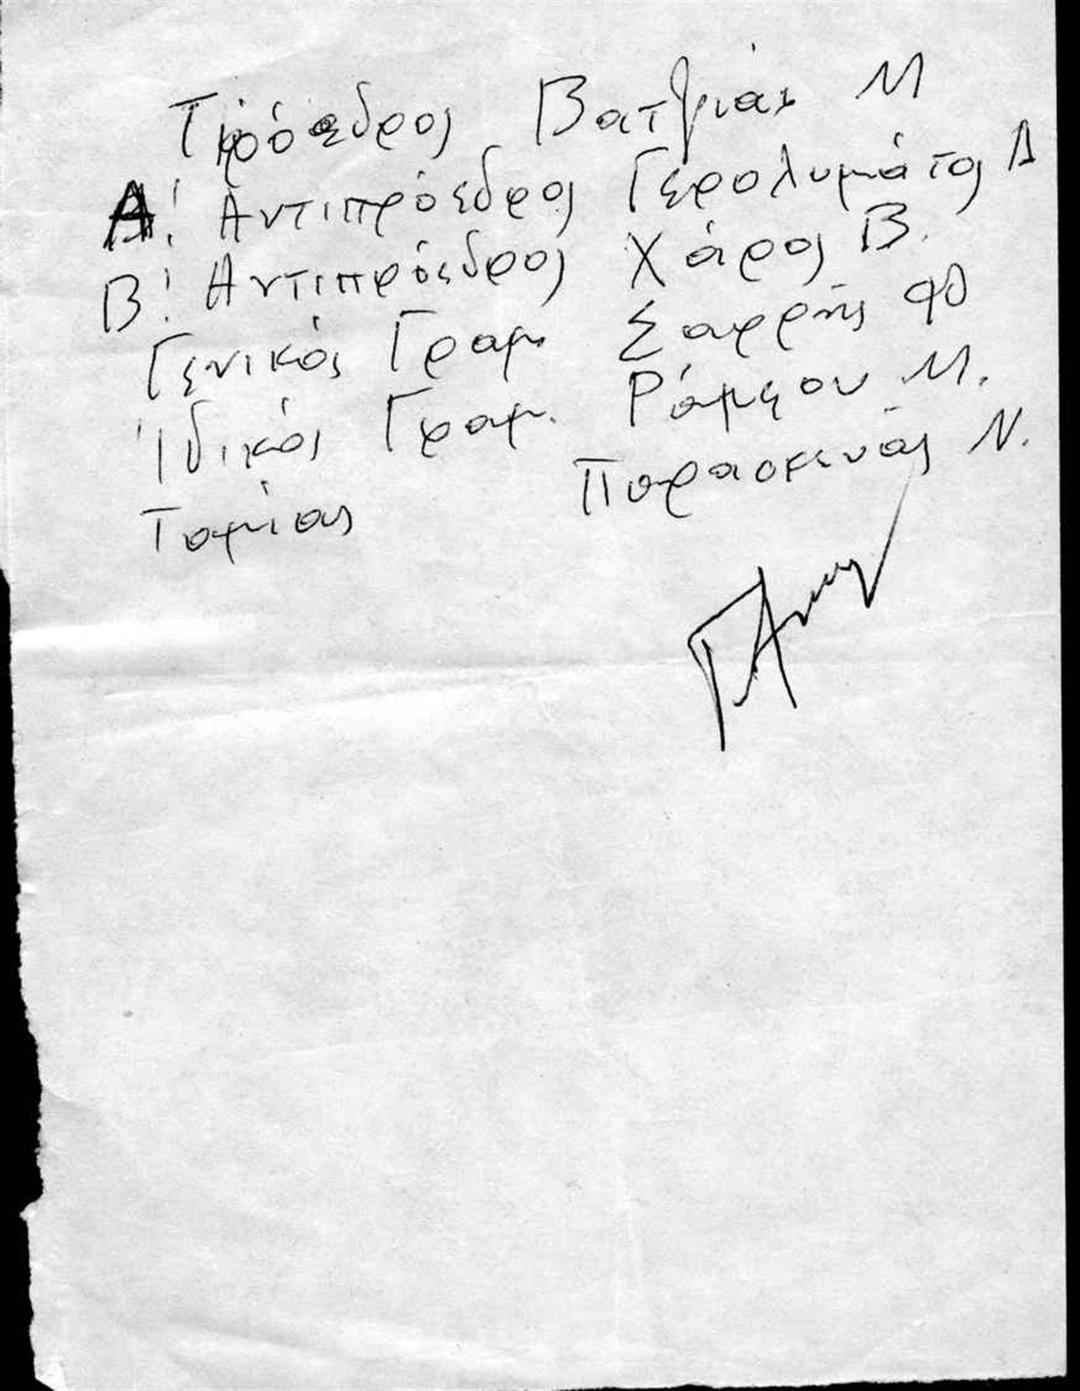 Πρόεδρος Βατζιάς Μ
Α! Αντιπρόεδρος Γερολυμάτος Δ
Β! Αντιπρόεδρος Χάρος Β.
Γενικός Γραμ. Σαρρής Φ
Ιδικός Γραμ. Ράμφου Μ.
Ταμίας Παρασκευάς Ν.